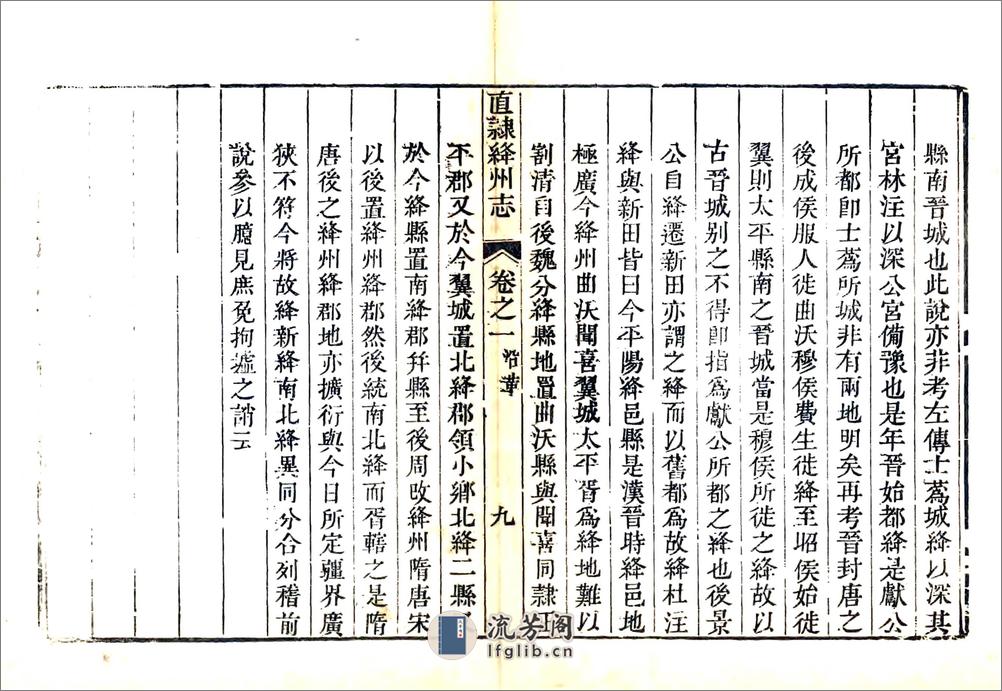 縣南晉城也此說亦非考左傳士蒍城絳以深其
宮林注以深公宮備豫也是年晉始都絳是獻公
所都卽士蒍所城非有兩地明矣再考晉封唐之
後成侯服人徙曲沃穆侯費生徙絳至昭侯始徙
翼則太平縣南之晉城當是穆侯所徙之絳故以
古晉城別之不得卽指爲獻公所都之絳也後景
公自絳遷新田亦謂之絳而以舊都爲故絳杜注
絳與新田皆曰今平陽絳邑縣是漢晉時絳邑地
極廣今絳州曲沃聞喜翼城太平胥爲絳地難以
割清自後魏分絳縣地置曲沃縣與聞喜同隸正
平郡又於今翼城置北絳郡領小鄉北絳二縣
於今絳縣置南絳郡幷縣至後周改絳州隋唐宋
以後置絳州絳郡然後統南北絳而胥轄之是隋
唐後之絳州絳郡地亦擴衍與今日所定疆界廣
狹不符今將故絳新絳南北絳異同分合列稽前
說參以臆見庶免拘墟之誚云
直隸絳州志 卷之一 沿革 九
流芳阁
lfglib.cn